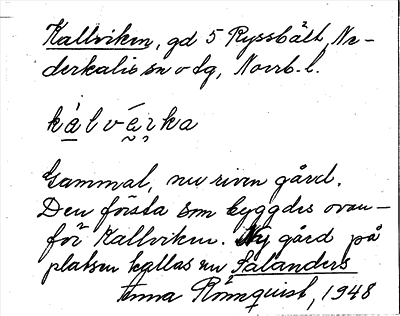 Kallviken, gd 5 Ryssbält, Ne-
derkalix sn o tg, Norrb. l.
kálvérka
Gammal, nu riven gård.
Den första som byggdes ovan-
för Kallviken. Ny gård på
platsen kallas nu Salanders
Anna Rönnquist, 1948